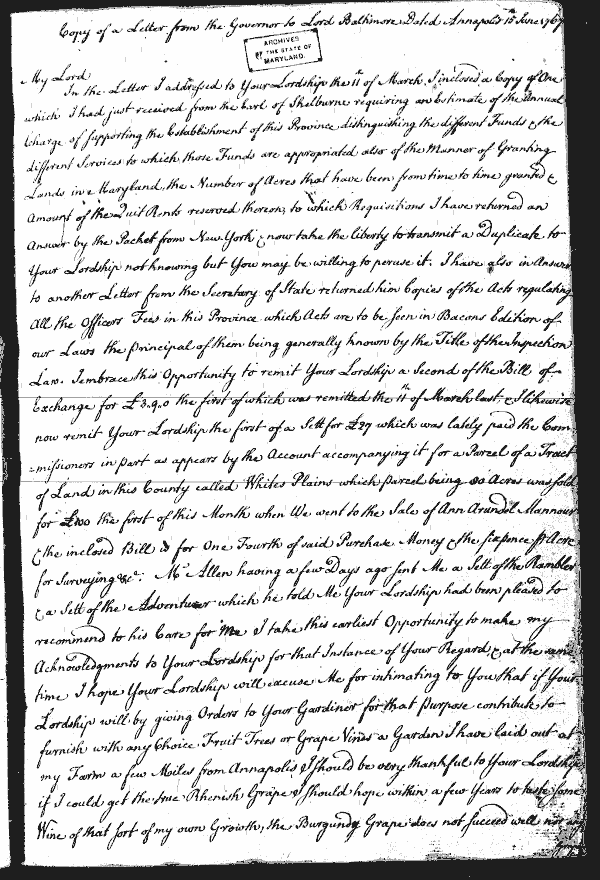 Copy of a Letter from the Governor to Lord Baltimore Dated Annapolis 15 June 1767
ARCHIVES
OF THE STATE OF
MARYLAND.
My Lord
In the Letter I addressed to Your Lordship the 11 of March, I inclosed a Copy of One
which I had just received from the Earl of Shelburne requiring an Estimate of the Annual
Charge of supporting the Establishment of this Province distinguishing the different Funds & the
different Services to which those Funds are appropriated also of the Manner of Granting
Lands in Maryland, the Number of Acres that have been from time to time granted &
Amount of the Quit Rents reserved thereon, to which Requisitions I have returned an
Answer by the Packet from New York & now take the liberty to transmit a Duplicate to
Your Lordship not knowing but You may be willing to peruse it. I have also in Answer
to another Letter from the Secretary of State returned him Copies of the Acts regulating
All the Officers Fees in this Province which Acts are to be seen in Bacons Edition of
our Laws the principal of them being generally known by the Title of the Inspection
Law. I embrace this Opportunity to remit Your Lordship a Second of the Bill of
Exchange for £3.9.0 the first of which was remitted the 11th of March last, & I likewise
now remit Your Lordship the first of a Sett for £27 which was lately paid the Com
=missioners in part as appears by the Account accompanying it for a Parcel of a Tract
of Land in this County called Whites Plains which parcel being 80 Acres was sold
for £100 the first of this Month when We went to the Sale of Ann Arundel Mannour
& the inclosed Bill is for One Fourth of said Purchase Money & the sixpence Acre
for Surveying &c. Mr Allen having a few Days ago sent Me a Sett of the Rambler
& a Sett of the Adventurer which he told Me Your Lordship had been pleased to
recommend to his Care for Me I take this earliest Opportunity to make my
Acknowledgments to Your Lordship for that Instance of Your Regard, & at the same
time I hope Your Lordship will excuse Me for intimating to You that if Your
Lordship will by giving Orders to Your Gardiner for that Purpose contribute to
furnish with any Choice Fruit Trees or Grape Vines a Garden I have laid out at
my Farm a few Miles from Annapolis I should be very thankful to Your Lordship
if I could get the true Rhenish Grape I should hope within a few Years to taste some
Wine of that sort of my own Growth, the Burgundy Grape does not succeed well nor